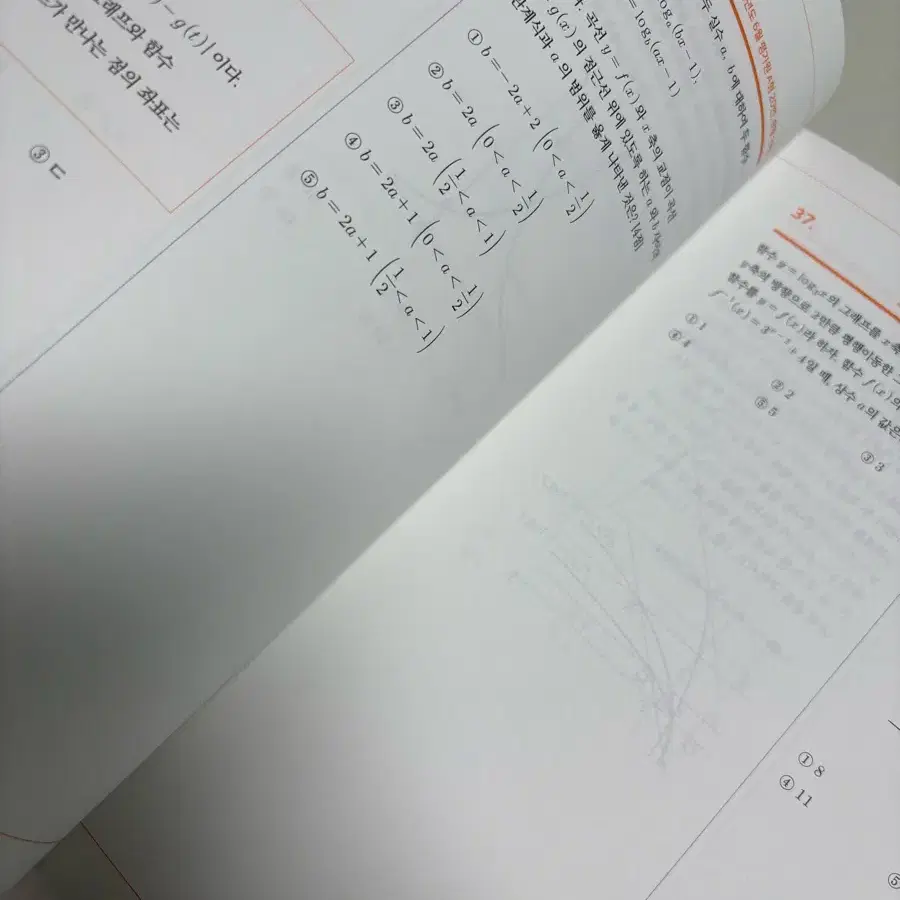 ) - g(t) | 이다.
래프와 함수
가 만나는 점의 좌표는
③ ㄷ
실수 a, b에 대하여 두 함수
log_a (bx - 1),
= log_b (ax - 1)
곡선 y = f(x)와 x축의 교점이 곡선
g(x)의 점근선 위에 있도록 하는 a와 b
관계식과 a의 범위를 옳게 나타낸 것은? [4점]
① b = -2a + 2 (0 < a < 1/2)
② b = 2a (0 < a < 1/2)
③ b = 2a (1/2 < a < 1)
④ b = 2a + 1 (0 < a < 1/2)
⑤ b = 2a + 1 (1/2 < a < 1)
37.
함수 y = log_3 x의 그래프를 x축
y축의 방향으로 2만큼 평행이동한 그
함수를 y = f(x)라 하자. 함수 f(x)의
f^{-1}(x) = 3^{x-2} + 4일 때, 상수 a의 값은
① 1
② 2
③ 3
④ 4
⑤ 5
① 8
④ 11
⑤